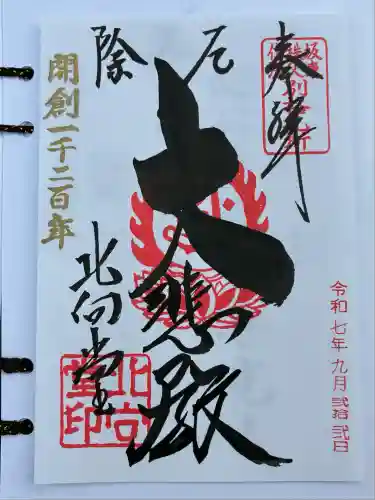 奉拝
令和七年九月弐拾弐日
厄除
大悲殿
北向堂
北向堂印
開創一千二百年